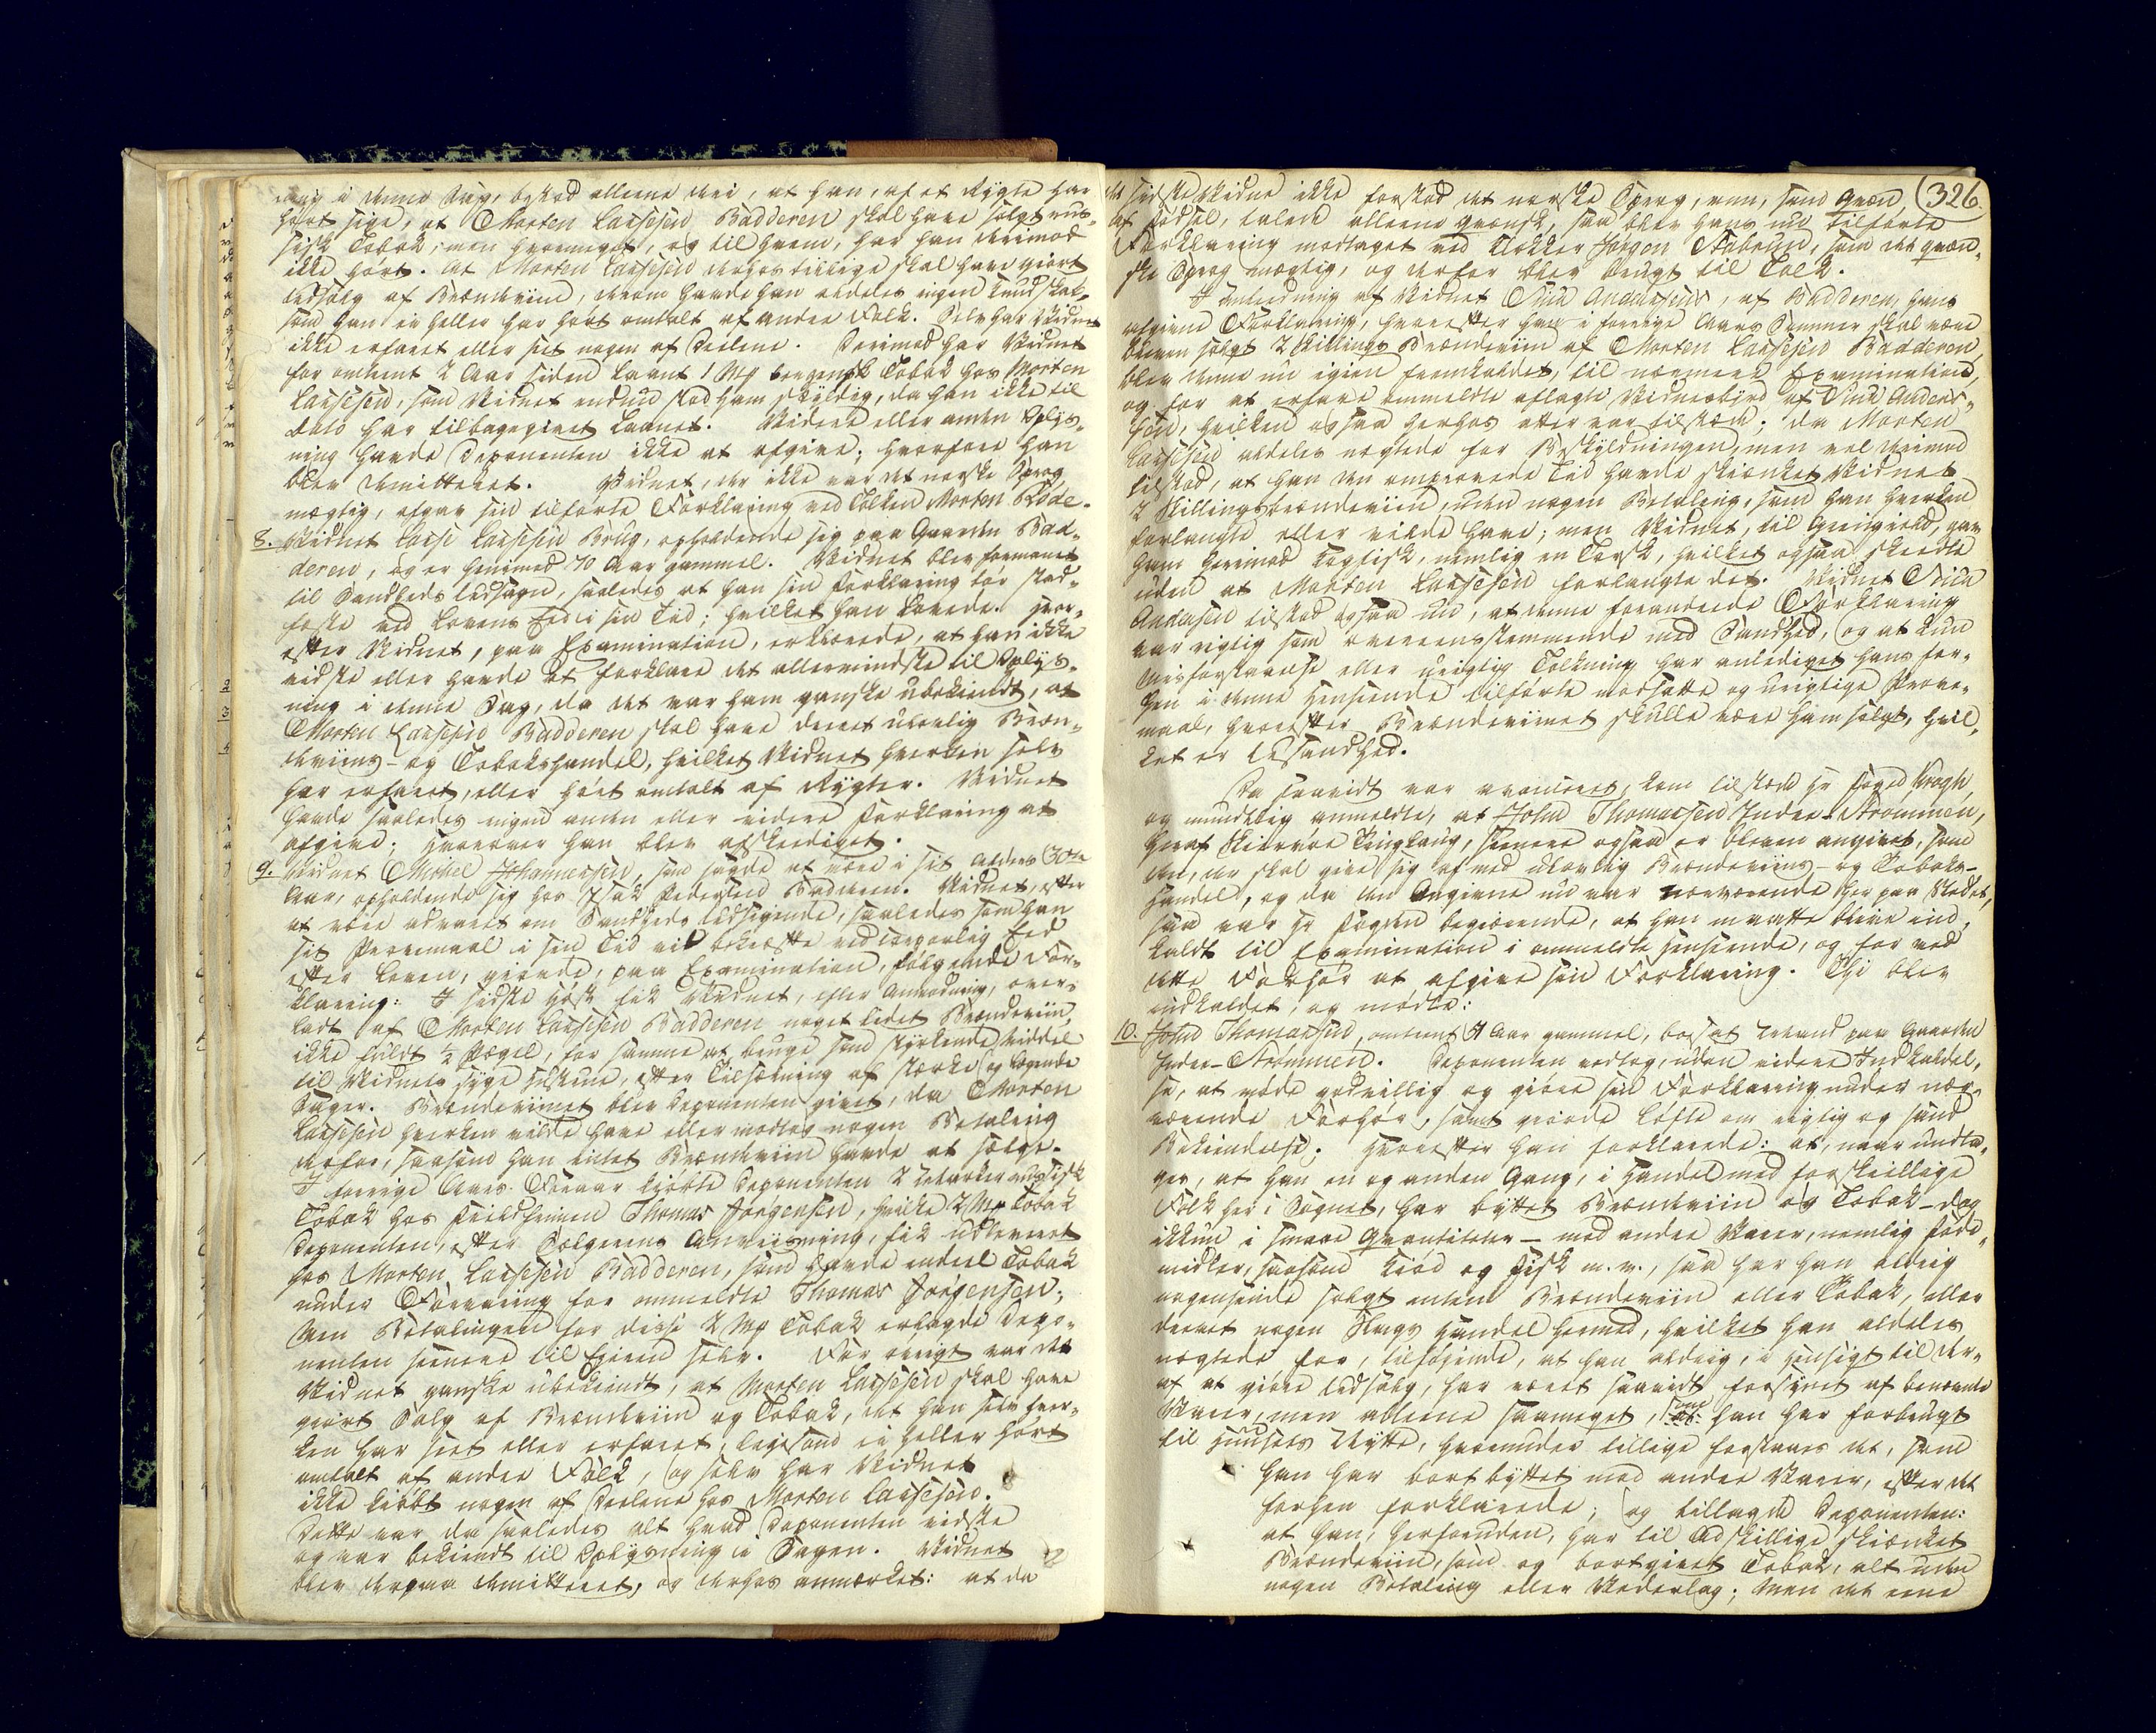 ning i denne Sag, bestod alleene deri, at han, af et Rygte har
hørt sige, at Morten Larsesen Badderen skal have solgt rus-
sisk Tobak; men hvormeget, og til hvem, har han derimod
ikke hørt. At Morten Larsesen derhos tillige skal have giort
Udsalg af Brændeviin, derom havde han aldeles ingen Kundskab,
som han ei heller har hørt omtalt af andre Folk. Selv har Vidnet
ikke erfaret eller seet nogen af Deelene. Derimod har Vidnet
for omtrent 2 Aar siden laant 1 Mp bergensk Tobak hos Morten
Larsesen, som Vidnet endnu stod ham skyldig, da han ikke til
dato har tilbagegivet Laanet. Videre eller anden Oplys-
ning havde Deponenten ikke at afgive; hvorfore han
blev demitteret. Vidnet, der ikke var det norske Sprog
mægtig, afgav sin tilførte Forklaring ved Tolken Morten Røde.
8. Vidnet Lars Larsesen Brug, opholdende sig paa Gaarden Bad-
deren, og er henimod 70 Aar gammel. Vidnet blev formanet
til Sandheds Udsagn, saaledes at han sin Forklaring tør stad-
fæste ved Lovens Eed i sin Tid; hvilket han lovede. Hvor-
efter Vidnet, paa Examination, erklærede, at han ikke
vidste eller havde at forklare det allermindste til Oplys-
ning i denne Sag, da det var ham ganske ubekiendt, at
Morten Larsesen Badderen skal have drevet ulovlig Bræn-
deviins- og Tobakshandel, hvilket Vidnet hverken selv
har erfaret, eller hørt omtalt af Rygter. Vidnet
havde saaledes ingen anden eller videre Forklaring at
afgive; hvorover han blev afskediget.
9. Vidnet Michel Johannesen, som sagde at være i sit Alders 30te
Aar, opholdende sig hos Isak Pedersen Badderen. Vidnet, efter
at være advaret om Sandheds Udsigende, saaledes som han
sit Provemaal i sin Tid vil bekræfte ved corporlig Eed
efter Loven, giorde, paa Examination, følgende For-
klaring: I sidste Høst fik Vidnet, efter Anmodning, over-
ladt af Morten Larsesen Badderen noget lidet Brændeviin,
ikke fuldt ½ Pægel, for samme at bruge som styrkende Middel
til Vidnets syge Hustrue, efter Tilsætning af stærke og
Sager. Brændeviinet blev Deponenten givet, da Morten
Larsesen hverken vilde have eller modtog nogen Betaling
derfor, saasom han intet Brændeviin havde at sælge.
I forrige Aars Foraar kjøbte Deponenten 2 russisk
Tobak hos Thomas Jørgensen, hvilke 2 Mp Tobak
Deponenten, efter Sælgerens Anviisning, fik udleveret
hos Morten Larsesen Badderen, som havde endeel Tobak
under Forvaring for ommeldte Thomas Jørgensen;
Men Betalingen for disse 2 Mp Tobak erlagde Depo-
nenten seenere til Eieren selv. For øvrigt var det
Vidnet ganske ubekiendt, at Morten Larsesen skal have
giort Salg af Brændeviin og Tobak, det han selv hver-
ken har seet eller erfaret, ligesom ei heller hørt
omtalt af andre Folk, og selv har Vidnet
ikke kiøbt nogen af Deelene hos Morten Larsesen.
Dette var da saaledes alt hvad Deponenten vidste
og var bekiendt til Oplysning i Sagen. Vidnet
blev derpaa demitteret, og derhos anmærket: at da
326
sidste Vidne ikke forstod det norske Sprog, men, som Qvæn
af Fødsel, talede alleene qvænsk, saa blev hans nu tilførte
Forklaring modtaget ved Klokker Jørgen Stabrun, som det qvæn-
ske Sprog mægtig, og derfor blev brugt til Tolk.
I Anledning af Vidnet Andersens, af Badderen, hans
afgivne Forklaring, hvorefter han i forrige Aars Sommer skal være
bleven solgt 2 Skillings Brændeviin af Morten Larsesen Badderen,
blev denne nu igien fremkaldet, til nærmere Examination,
og for at erfare ommeldte aflagte Vidnesbyrd af Anders-
sen, hvilken ogsaa herhos atter var tilstæde; da Morten
Larsesen aldeles nægtede for Beskyldningen, men vel derimod
tilstod, at han den ommeldte Tid havde skienket Vidnet
2 Skillingsbrændeviin, uden nogen Betaling, som han hverken
forlangte eller vilde have; men Vidnet, til Giengield, gav
ham herimod Kogfisk, nemlig en Torsk, hvilket ogsaa skeedte
uden at Morten Larsesen forlangte det. Vidnet
Andersen tilstod ogsaa nu, at denne forandrede Forklaring
var rigtig som overeensstemmende med Sandhed, og at kun
Misforstaaelse eller urigtig Tolkning har anlediget hans for-
hen i denne Henseende tilførte modsatte og urigtige Prove-
maal, hvorefter Brændeviinet skulle være ham solgt, hvil-
ket er Usandhed.
Da saavidt var avanceret, kom tilstæde Hr Foged Krogh,
og mundtlig anmeldte, at John Thomassen Indre-Strømmen,
heraf Skiervøe Tinglaug, seenere ogsaa er bleven angivet, som
den, der skal give sig af med ulovlig Brændeviins- og Tobaks-
handel, og da den Angivne nu var nærværende her paa Stedet,
saa var Hr Fogden begierende, at han maatte blive ind-
kaldt til Examination i ommeldte Henseende, og for ved
dette Forhør at afgive sin Forklaring. Thi blev
indkaldet, og mødte:
10. John Thomassen, omtrent Aar gammel, bosat paa Gaarden
Indre-Strømmen. Deponenten vedtog, uden videre Indkaldel-
se, at møde godvillig og giøre sin Forklaring under nær-
værende Forhør, samt giorde Løfte om rigtig og sand
Bekiendelse. Hvorefter han forklarede: at, naar undta-
ges, at han en og anden Gang, i Handel med forskiellige
Folk her i Sognet, har byttet Brændeviin og Tobak - dog
ikkun i smaae Qvantiteter - med andre Varer, nemlig Føde-
midler, saasom Kiød og Fisk m. v., saa har han aldrig
nogensinde solgt enten Brændeviin eller Tobak, eller
drevet nogen Slags Handel hermed, hvilket han aldeles
nægtede for, tilføjende, at han aldrig, i Hensigt til der-
af at giøre Udsalg, har været saavidt forsynet af benævnte
Varer, men alleene saameget, som han har forbrugt
til Huusets Nytte, hvorunder tillige forstaaes det, som
han har bortbyttet med andre Varer, efter det
forhen forklarede; og tillagde Deponenten:
at han, herforuden, har til Adskillige skienket
Brændeviin, som og bortgivet Tobak, alt uden
nogen Betaling eller Vederlag; Men det eene